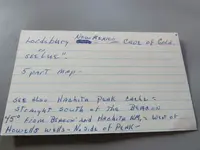 Lordsburg New Mexico Cave of Gold.
5 part Map -
See Also Hachita Peak Cache -
Straight South of the Beacon
45° From Beacon and Hachita N.M. - West of
Howells Wells - No. side of Peak -